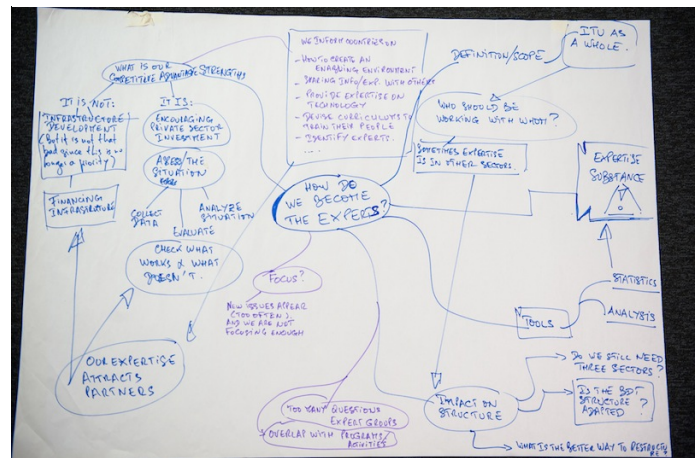 WHAT IS OUR
COMPETITIVE ADVANTAGE STRENGTHS
IT IS NOT:
INFRASTRUCTURE
DEVELOPMENT
(But it is not that
bad since this is no
longer a priority)
FINANCING
INFRASTRUCTURE
IT IS:
ENCOURAGING
PRIVATE SECTOR
INVESTMENT
ASSESS THE
SITUATION
COLLECT
DATA
ANALYZE
SITUATION
EVALUATE
CHECK WHAT
WORKS & WHAT
DOESN'T.
OUR EXPERTISE
ATTRACTS
PARTNERS
WE INFORM COUNTRIES ON
- HOW TO CREATE AN
ENABLING ENVIRONMENT
- SHARING INFO/EXP. WITH OTHERS
- PROVIDE EXPERTISE ON
TECHNOLOGY
- DEVISE CURRICULUMS TO
TRAIN THEIR PEOPLE
- IDENTIFY EXPERTS.
- ....
HOW DO
WE BECOME
THE EXPERTS?
FOCUS?
NEW ISSUES APPEAR
(TOO OFTEN).
AND WE ARE NOT
FOCUSING ENOUGH
TOO MANY QUESTIONS
EXPERT GROUPS
OVERLAP WITH PROGRAMS/
ACTIVITIES
DEFINITION/SCOPE
ITU AS
A WHOLE.
WHO SHOULD BE
WORKING WITH WHOM?
SOMETIMES EXPERTISE
IS IN OTHER SECTORS.
EXPERTISE
SUBSTANCE
TOOLS
STATISTICS
ANALYSIS
IMPACT ON
STRUCTURE
DO WE STILL NEED
THREE SECTORS?
IS THE BDT
STRUCTURE ?
ADAPTED
WHAT IS THE BETTER WAY TO RESTRUCTU
RE?